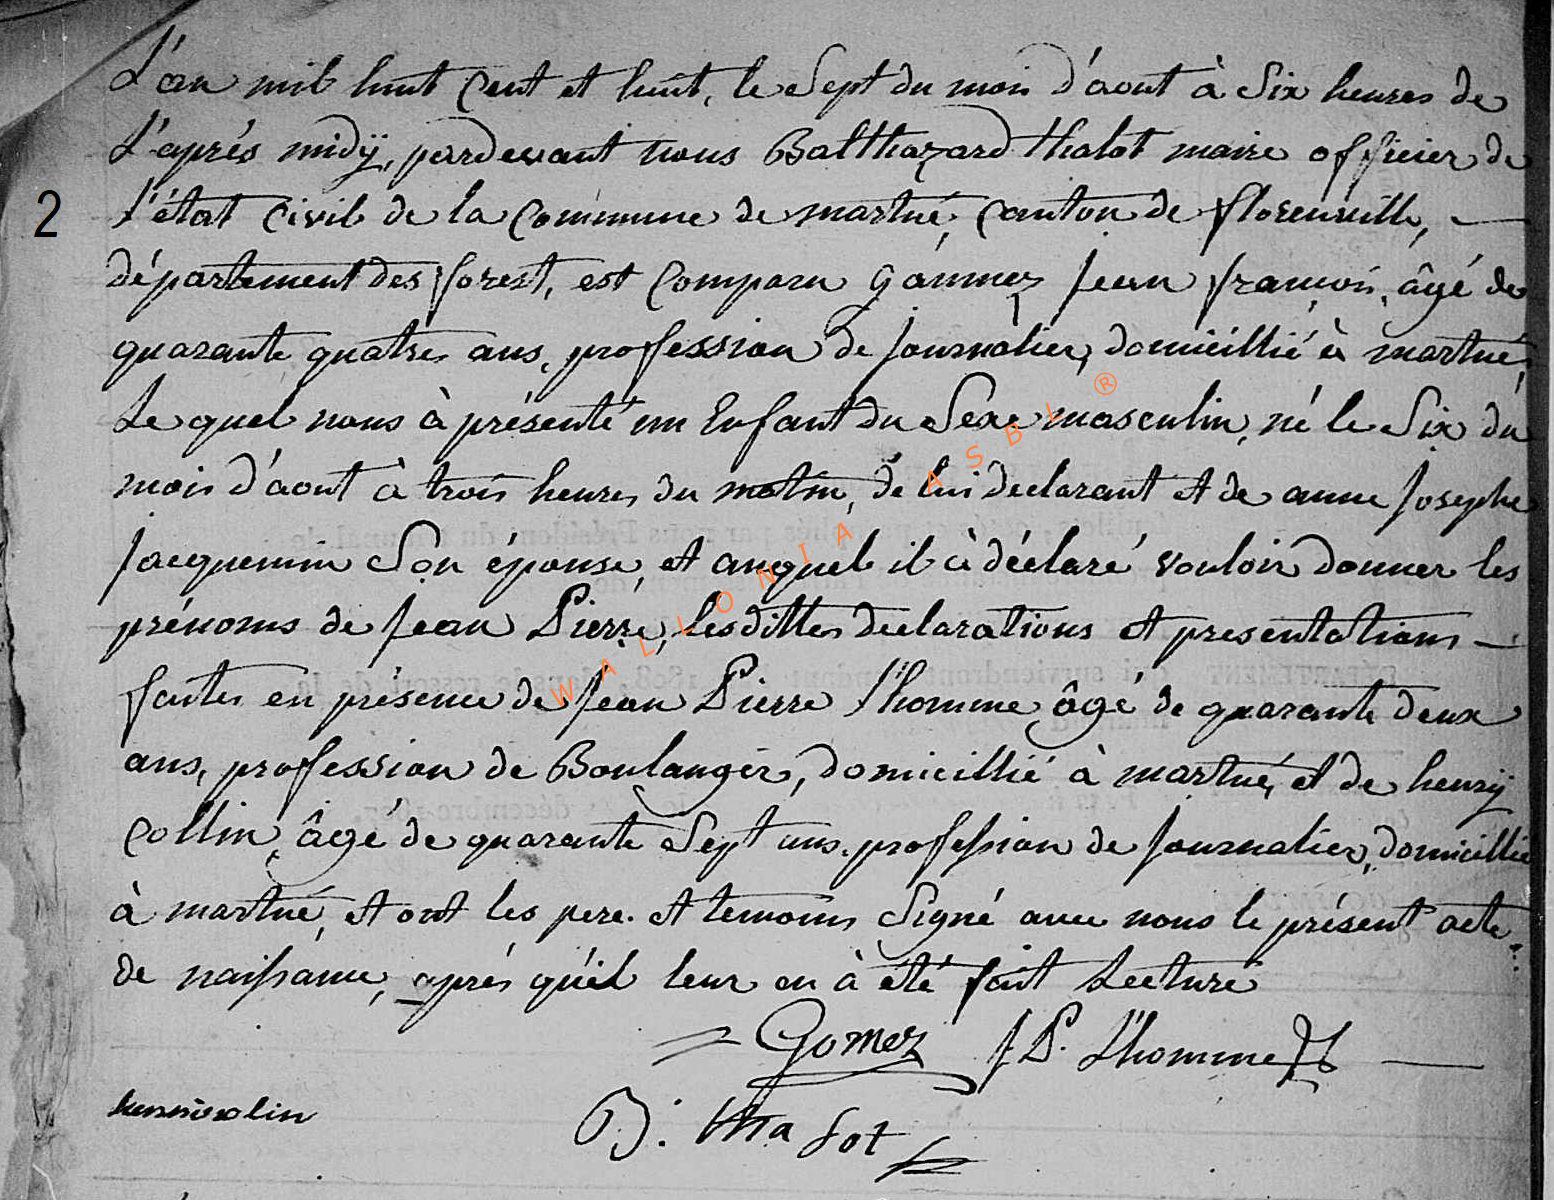 L'an mil huit Cent et huit, le Sept du mois d'aout à Six heures de
L'aprés midÿ, pardevant nous Balthazard thalot maire officier de
2 l'état Civil de la Commune de martué, Canton de florenville,
département des forest, est Comparu Gaumez Jean françois, âgé de
quarante quatres ans, profession de Journalier, domicillié à martué,
Le quel nous à présenté un Enfant du Sexe masculin, né le Six du
mois d'aout à trois heures du matin, de lui declarant et de anne Josephe
Jacquemin Son épouse, et auquel il à déclaré vouloir donner les
prénoms de Jean Pierre, lesdittes declarations et presentations
faites en présence de Jean Pierre l'homme âgé de quarante deux
ans, profession de Boulanger, domicillié à martué, et de henrÿ
Collin, âgé de quarante Sept ans, profession de Journalier, domicillié
à martué, et ont les pere et temoins Signé avec nous le présent acte
de naissance, aprés qu'il leur en à été fait Lecture
Gomez J P. L'homme
henri colin
B. thalot
WALLONIA ASBL ®